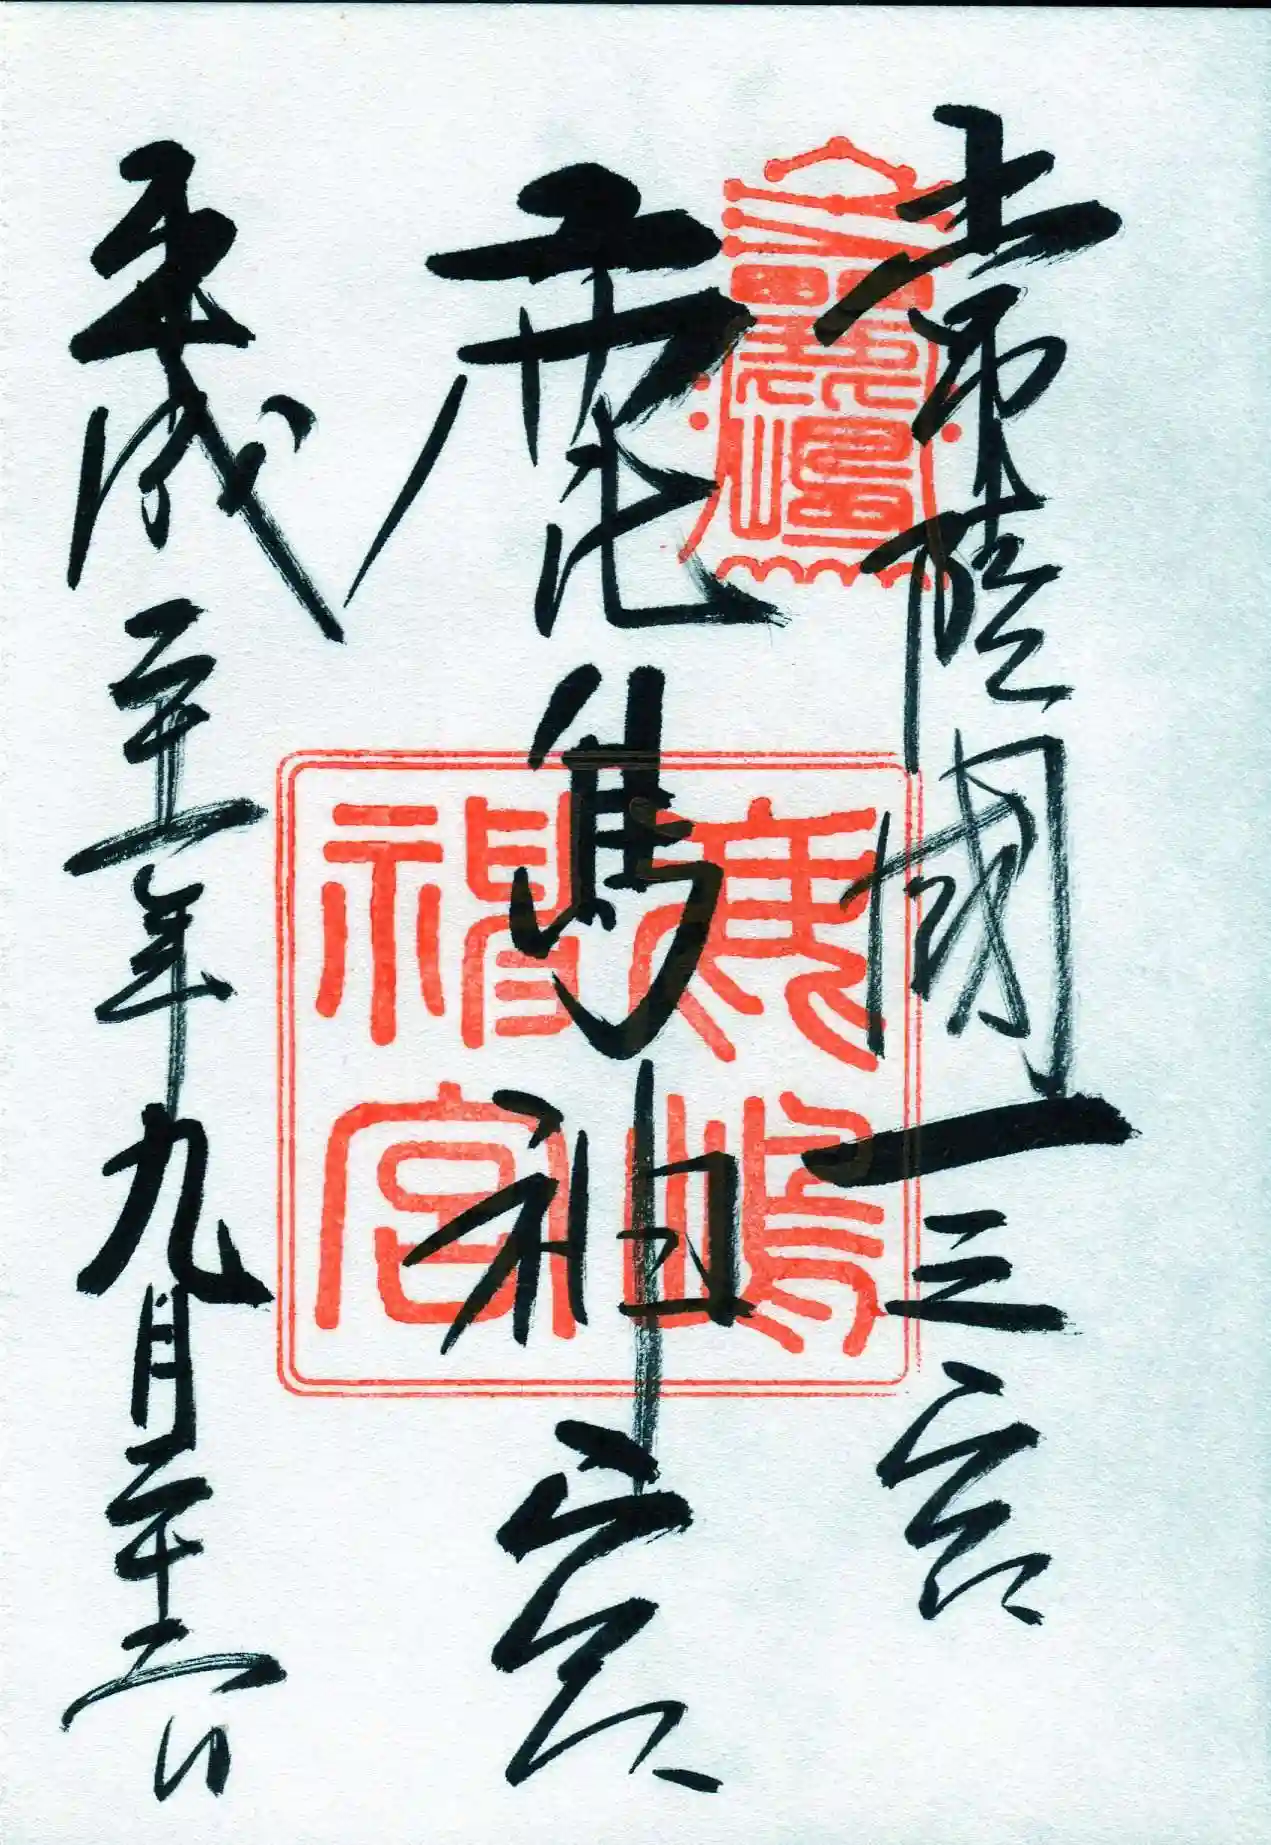 常陸國一之宮
鹿島神宮
平成二十二年九月二十二日
鹿嶋
神宮